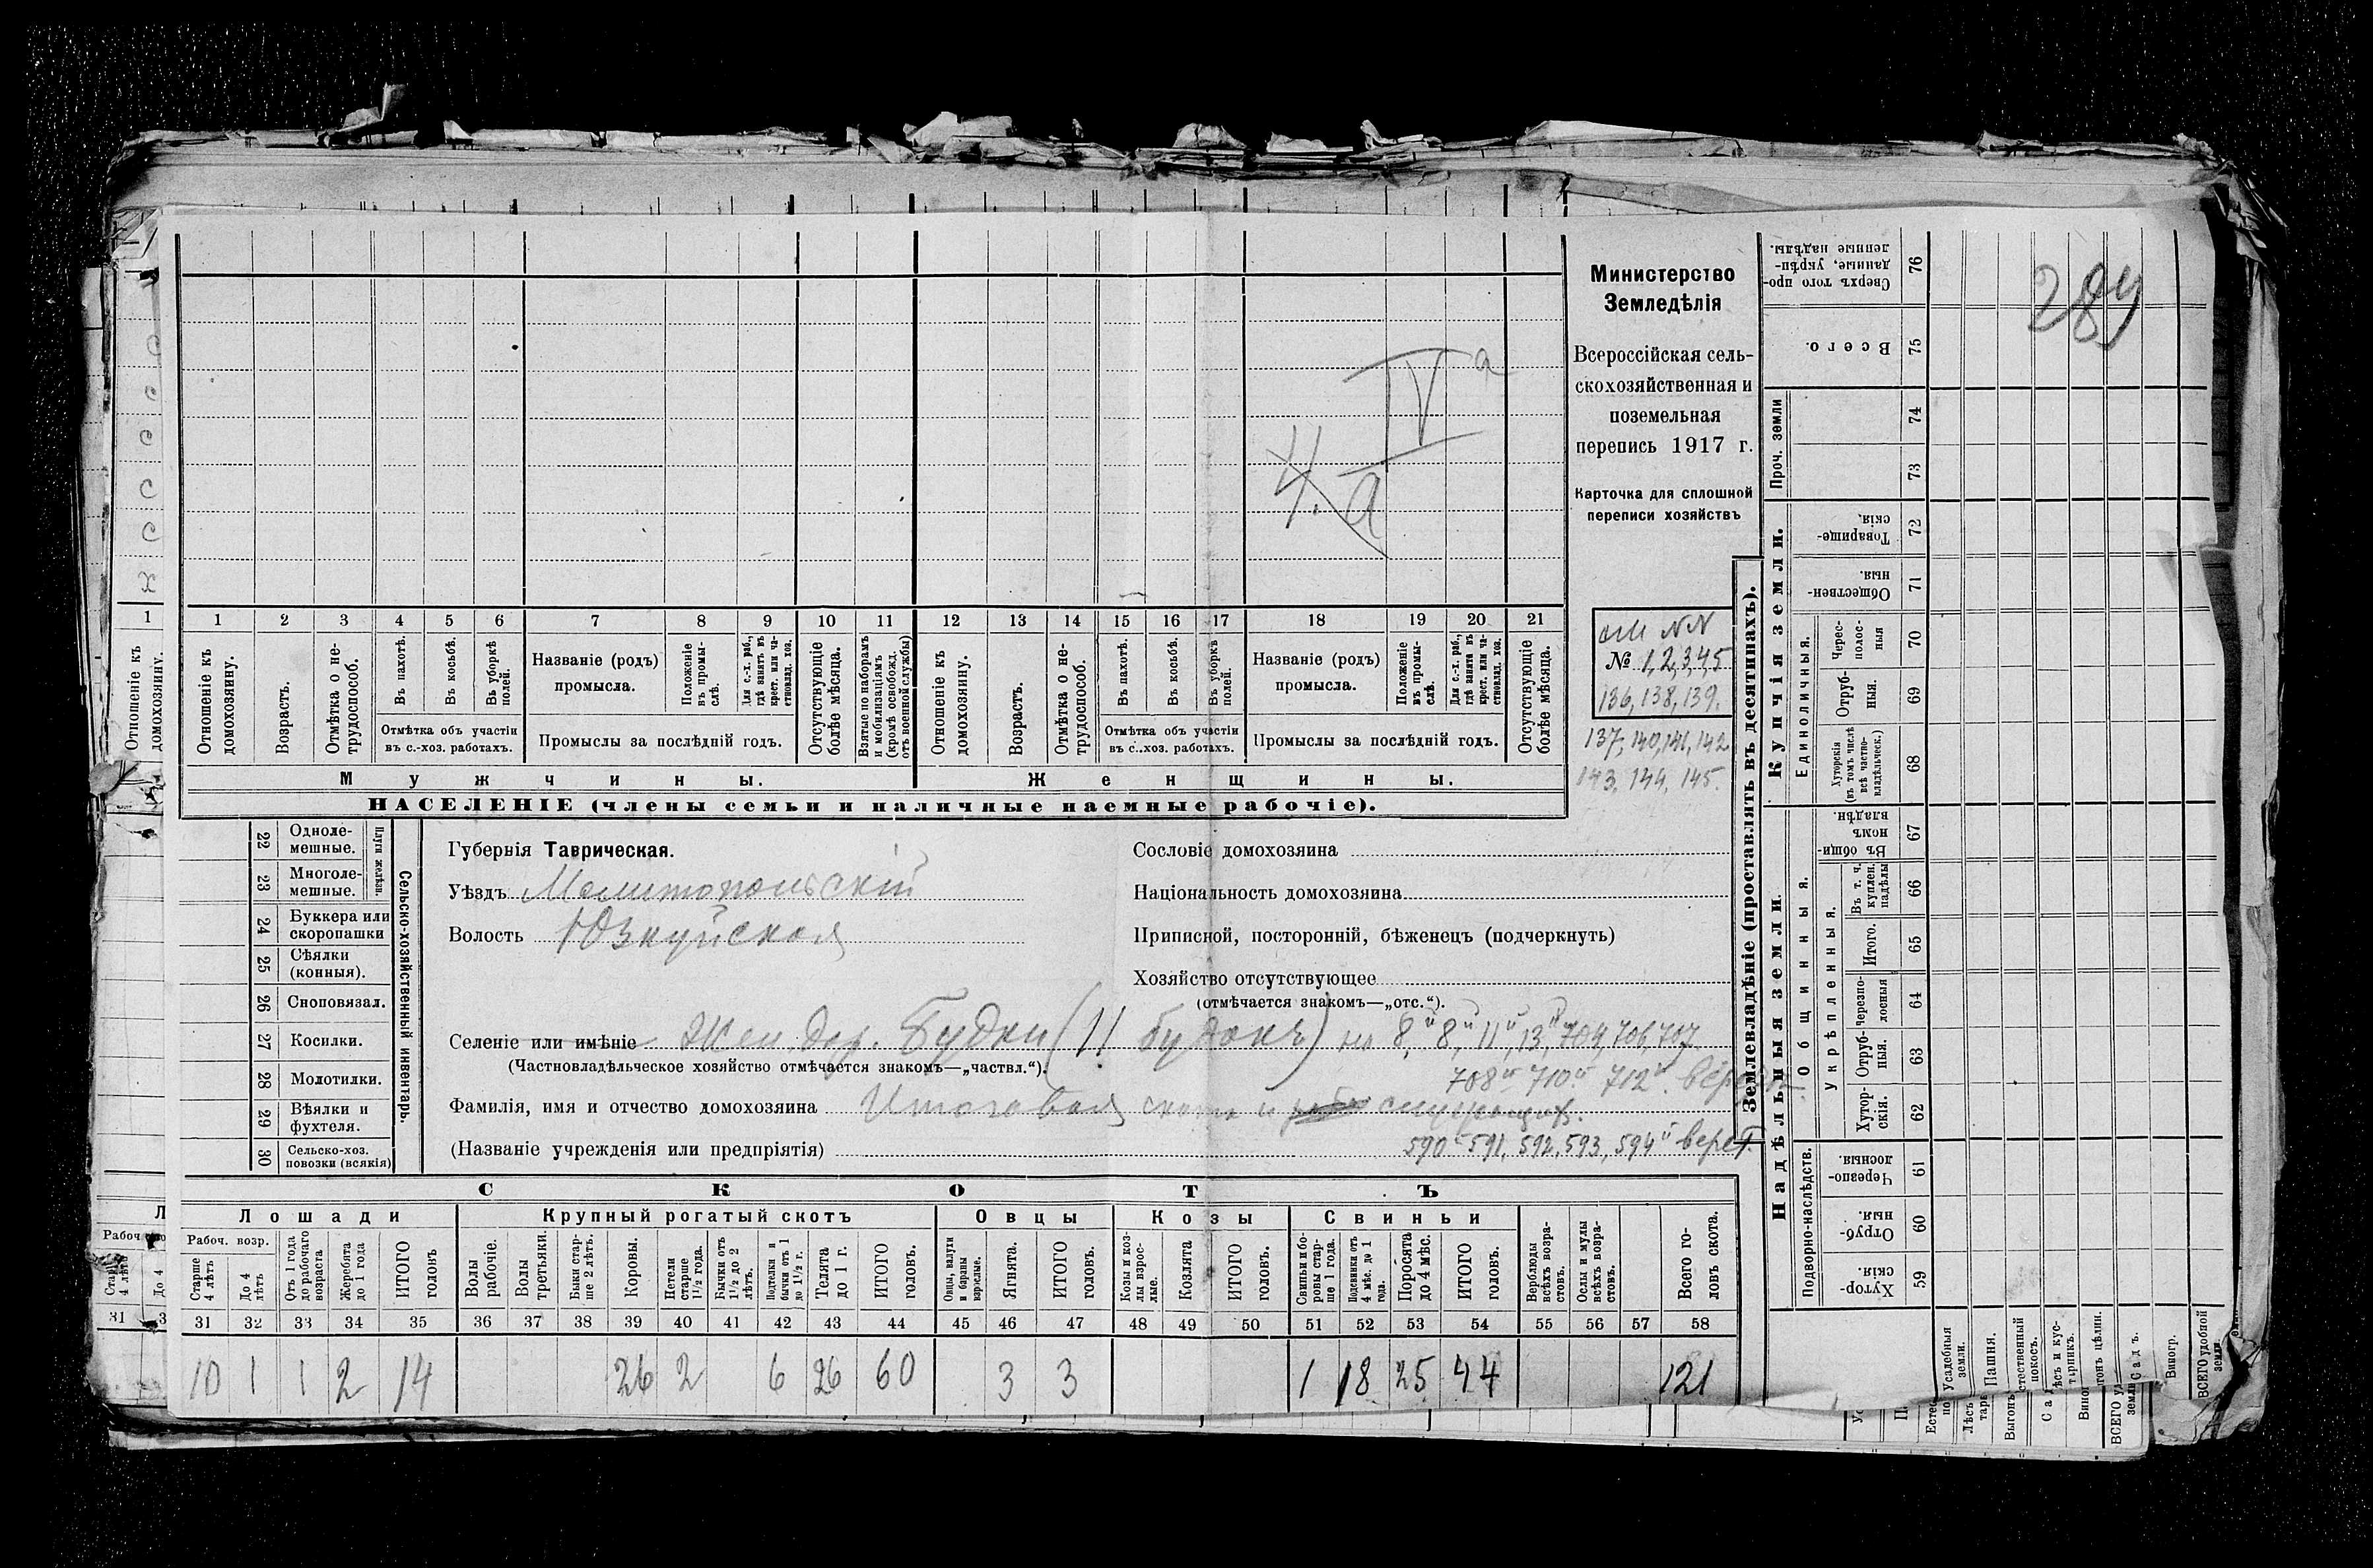 Министерство
Земледѣлія
Всероссійская сель-
скохозяйственная и
поземельная
перепись 1917 г.
Карточка для сплошной
переписи хозяйствъ
IV а
4. а
289
№ 1,2,3,4,5
136, 138, 139.
137, 140, 141, 142
143, 144, 145.
1 2 3 4 5 6 7 8 9 10 11 12 13 14 15 16 17 18 19 20 21
Отношеніе къ домохозяину.
Возрастъ.
Отмѣтка о не-трудоспособ.
Въ пахотѣ.
Въ косьбѣ.
Въ уборкѣ полей.
Отмѣтка объ участіи
въ с.-хоз. работахъ.
Названіе (родъ)
промысла.
Положеніе въ промы-слѣ.
Для с.-х. раб., гдѣ занятъ въ крест. или ча-стновлад. хоз.
Промыслы за послѣдній годъ.
Отсутствующіе болѣе мѣсяца.
Взятые по наборамъ и мобилизаціямъ (кромѣ освобожд. отъ военной службы)
Отношеніе къ домохозяину.
Возрастъ.
Отмѣтка о не-трудоспособ.
Въ пахотѣ.
Въ косьбѣ.
Въ уборкѣ полей.
Отмѣтка объ участіи
въ с.-хоз. работахъ.
Названіе (родъ)
промысла.
Положеніе въ промы-слѣ.
Для с.-х. раб., гдѣ занята въ крест. или ча-стновлад. хоз.
Промыслы за послѣдній годъ.
Отсутствующіе болѣе мѣсяца.
Мужчины.
Женщины.
НАСЕЛЕНІЕ (члены семьи и наличные наемные рабочіе).
Сельско-хозяйственный инвентарь.
Плуги желѣзн.
22 Одноле-мешные.
23 Многоле-мешные.
24 Буккера или скоропашки
25 Сѣялки (конныя).
26 Сноповязал.
27 Косилки.
28 Молотилки.
29 Вѣялки и фухтеля.
30 Сельско-хоз. повозки (всякія)
Губернія Таврическая.
Уѣздъ Мелитопольскій
Волость Юзкуйская
Сословіе домохозяина
Національность домохозяина
Приписной, посторонній, бѣженецъ (подчеркнуть)
Хозяйство отсутствующее
(отмѣчается знакомъ—„отс.“).
Селеніе или имѣніе Жел дор. Будки (11 будокъ) на 8, 8, 11, 13, 704, 706, 707
(Частновладѣльческое хозяйство отмѣчается знакомъ—„частвл.“).
708 710 712
Фамилія, имя и отчество домохозяина Итоговая
(Названіе учрежденія или предпріятія) 590 591, 592, 593, 594 верст.
СКОТЪ
Лошади
Крупный рогатый скотъ
Овцы
Козы
Свиньи
Рабоч. возр.
Старше 4 лѣтъ
До 4 лѣтъ
Отъ 1 года до рабочаго возраста
Жеребята до 1 года
ИТОГО головъ
Волы рабочіе.
Волы третьяки.
Быки стар-ше 2 лѣтъ.
Коровы.
Нетели старше 1½ года.
Бычки отъ 1½ до 2 лѣтъ.
Подтелки и бычки отъ 1 до 1½ г.
Телята до 1 г.
ИТОГО головъ.
Овцы, валухи и бараны взрослые.
Ягнята.
ИТОГО головъ.
Козы и коз-лы взрос-лые.
Козлята
ИТОГО головъ.
Свиньи и бо-ровы стар-ше 1 года.
Подсвинки отъ 4 мѣс. до 1 года.
Поросята до 4 мѣс.
ИТОГО головъ.
Верблюды всѣхъ возра-стовъ.
Ослы и мулы всѣхъ возра-стовъ.
Всего го-ловъ скота.
31 32 33 34 35 36 37 38 39 40 41 42 43 44 45 46 47 48 49 50 51 52 53 54 55 56 57 58
10 1 1 2 14 26 2 6 26 60 3 3 1 18 25 44 121
Землевладѣніе (проставлять въ десятинахъ).
Купчія земли.
Надѣльныя земли.
Проч. земли
Единоличныя.
Общинныя.
Укрѣпленныя.
Подворно-наслѣдств.
76 Сверхъ того про-данные, укрѣп-ленные надѣлы.
75 Всего.
74
73
72 Товарище-скія.
71 Обществен-ныя.
70 Черес-полос-ныя
69 Отруб-ныя.
68 Хуторскія (въ томъ числѣ всѣ частно-владѣльческ.)
67 Въ общи-номъ владѣн.
66 Въ т. ч. куплен. надѣлы
65 Итого.
64 Черезпо-лосныя
63 Отруб-ныя.
62 Хутор-скія.
61 Черезпо-лосныя.
60 Отруб-ныя.
59 Хутор-скія.
Усадебныя земли.
Пашня.
Виногр.
ВСЕГО удобной земли.